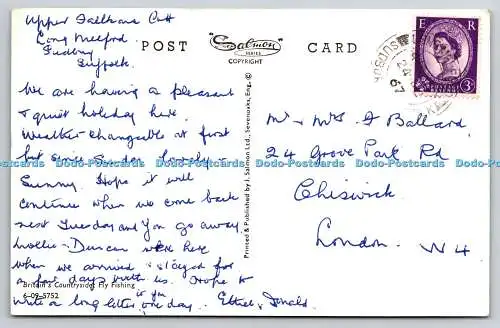 Upper
Long Melford
Sudbury
Suffolk
POST
Salmon
SERIES
COPYRIGHT
CARD
We are having a pleasant
& quiet holiday here.
Weather changeable at first
but since Sunday lovely &
Sunny. Hope it will
continue when we come back
next Tuesday and you go away.
Mollie & Duncan were here
when we arrived & stayed for
a few days with us. Hope to
write a long letter to you one day. Ethel & Donald
Britain's Countryside: Fly Fishing
6-09-5752
Printed & Published by J. Salmon Ltd., Sevenoaks, Eng. ©
E R
POSTAGE REVENUE
3D
67
Mr & Mrs F Ballard,
24 Grove Park Rd
Chiswick
London W4
Dodo-Postcards Dodo-Postcards Dodo-Postcards Dodo-Postcards Dodo-Postcards Dodo-Postcards